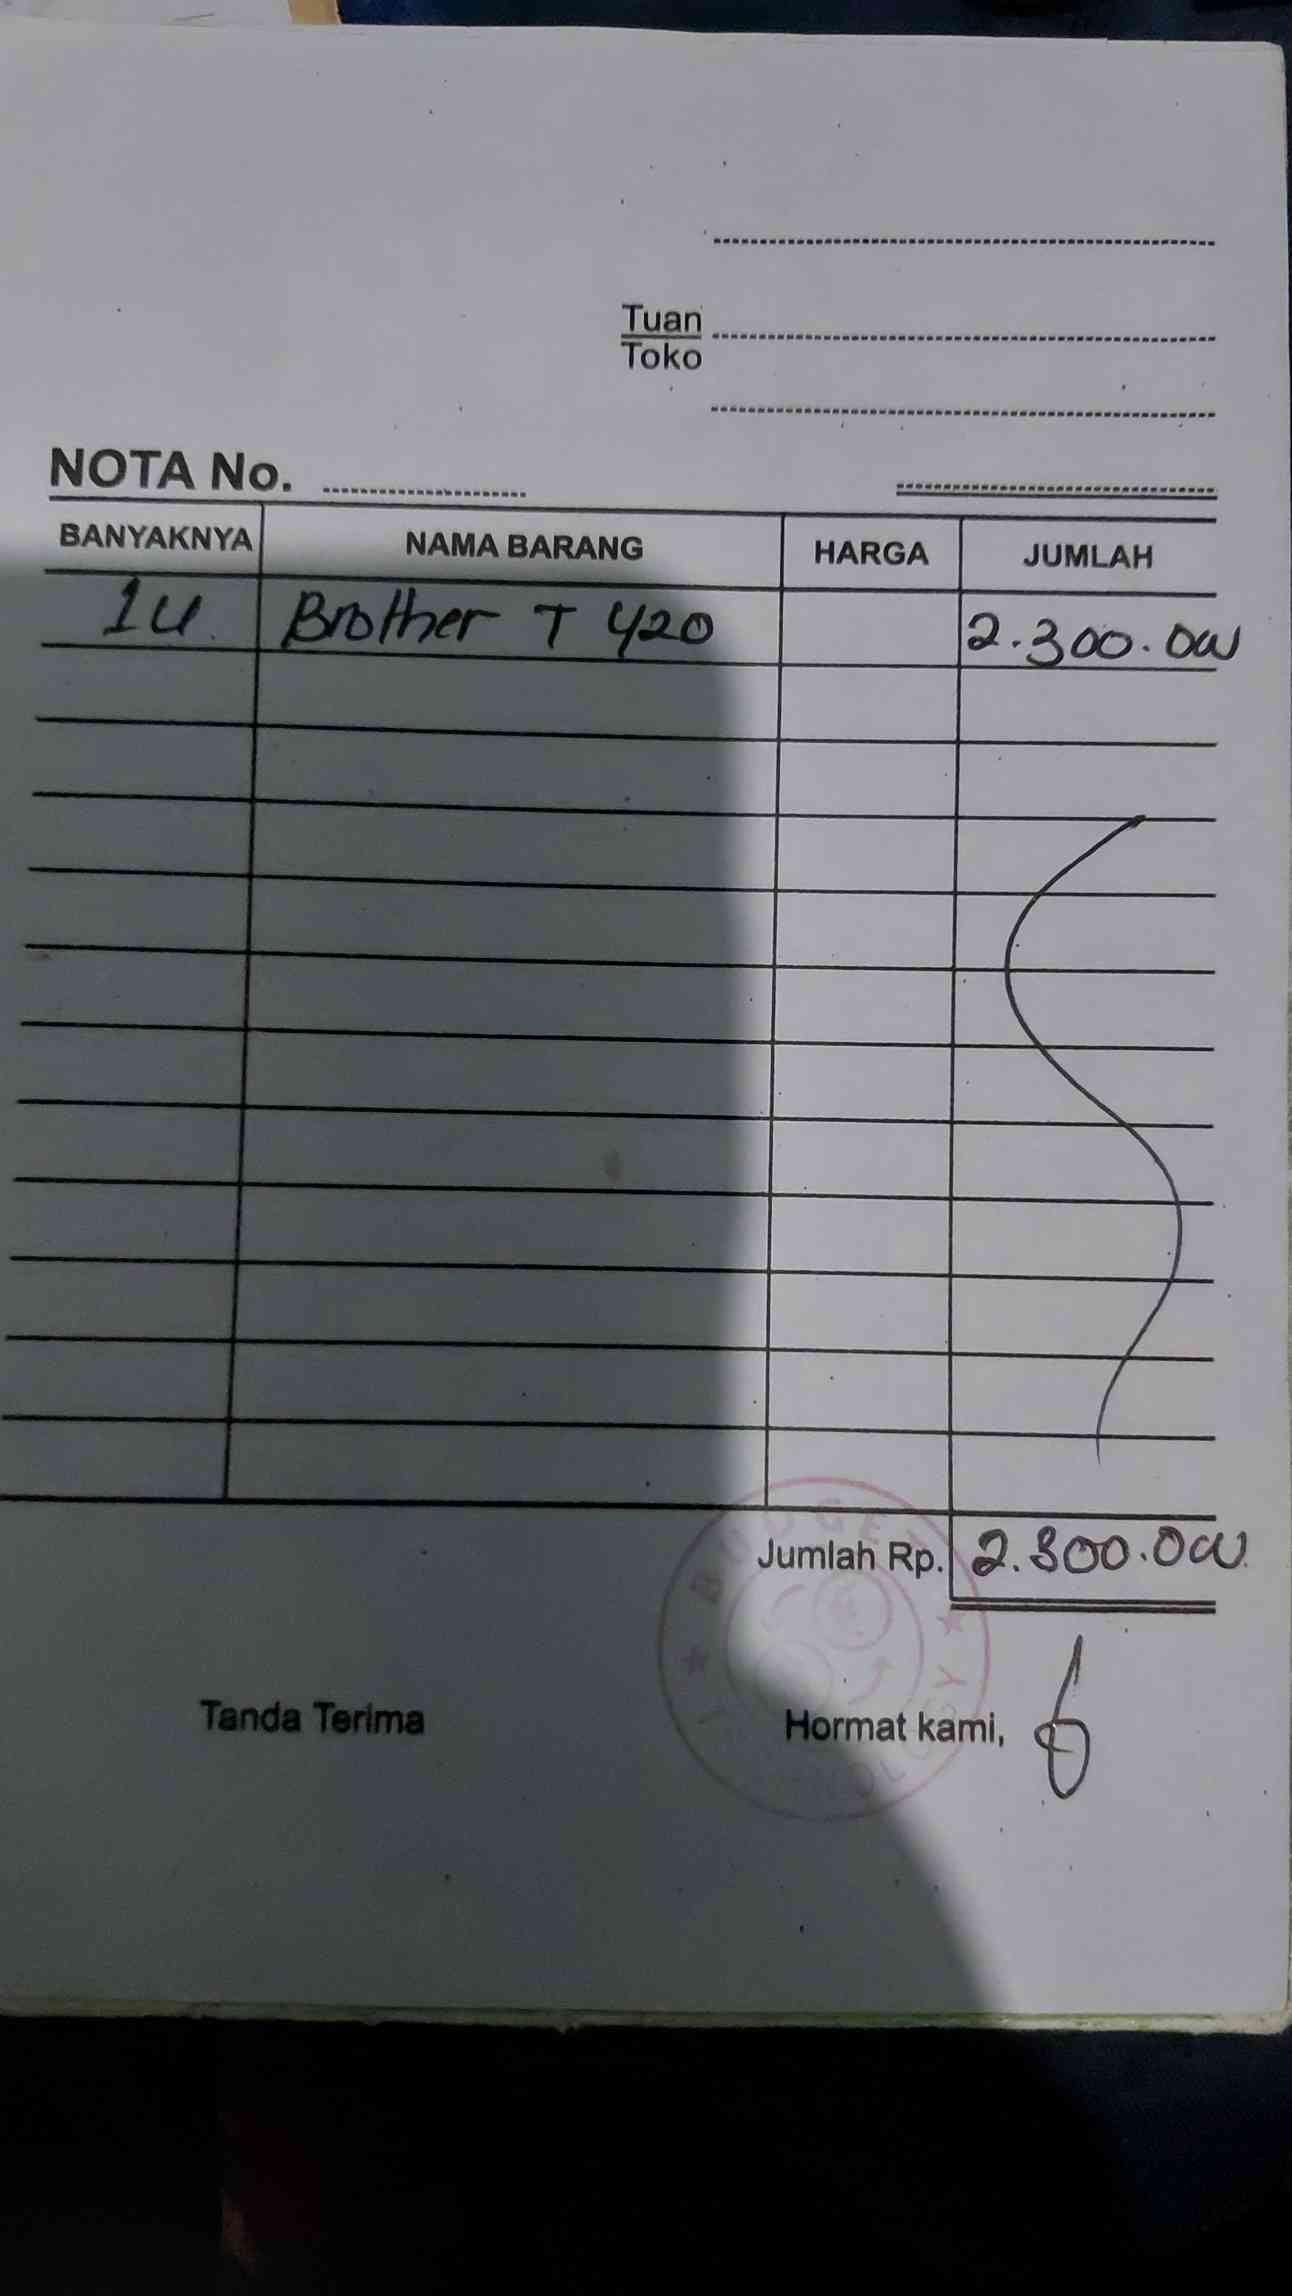 Tuan
Toko
NOTA No.
BANYAKNYA NAMA BARANG HARGA JUMLAH
1 U. Brother T 420 2.300.000
Jumlah Rp. 2.300.000
BUDGET
Tanda Terima Hormat kami,